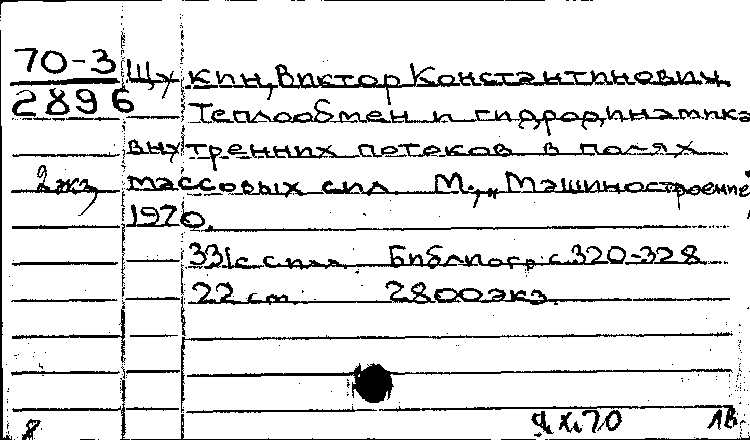 70-3 Щукин, Виктор Константинович.
2896 Теплообмен и гидродинамика
внутренних потоков в полях
2 экз. массовых сил. М., „Машиностроение",
1970.
331 с с илл. Библиогр: с. 320-328
22 см. 2800 экз.
Я. X. 70 ЛВ.